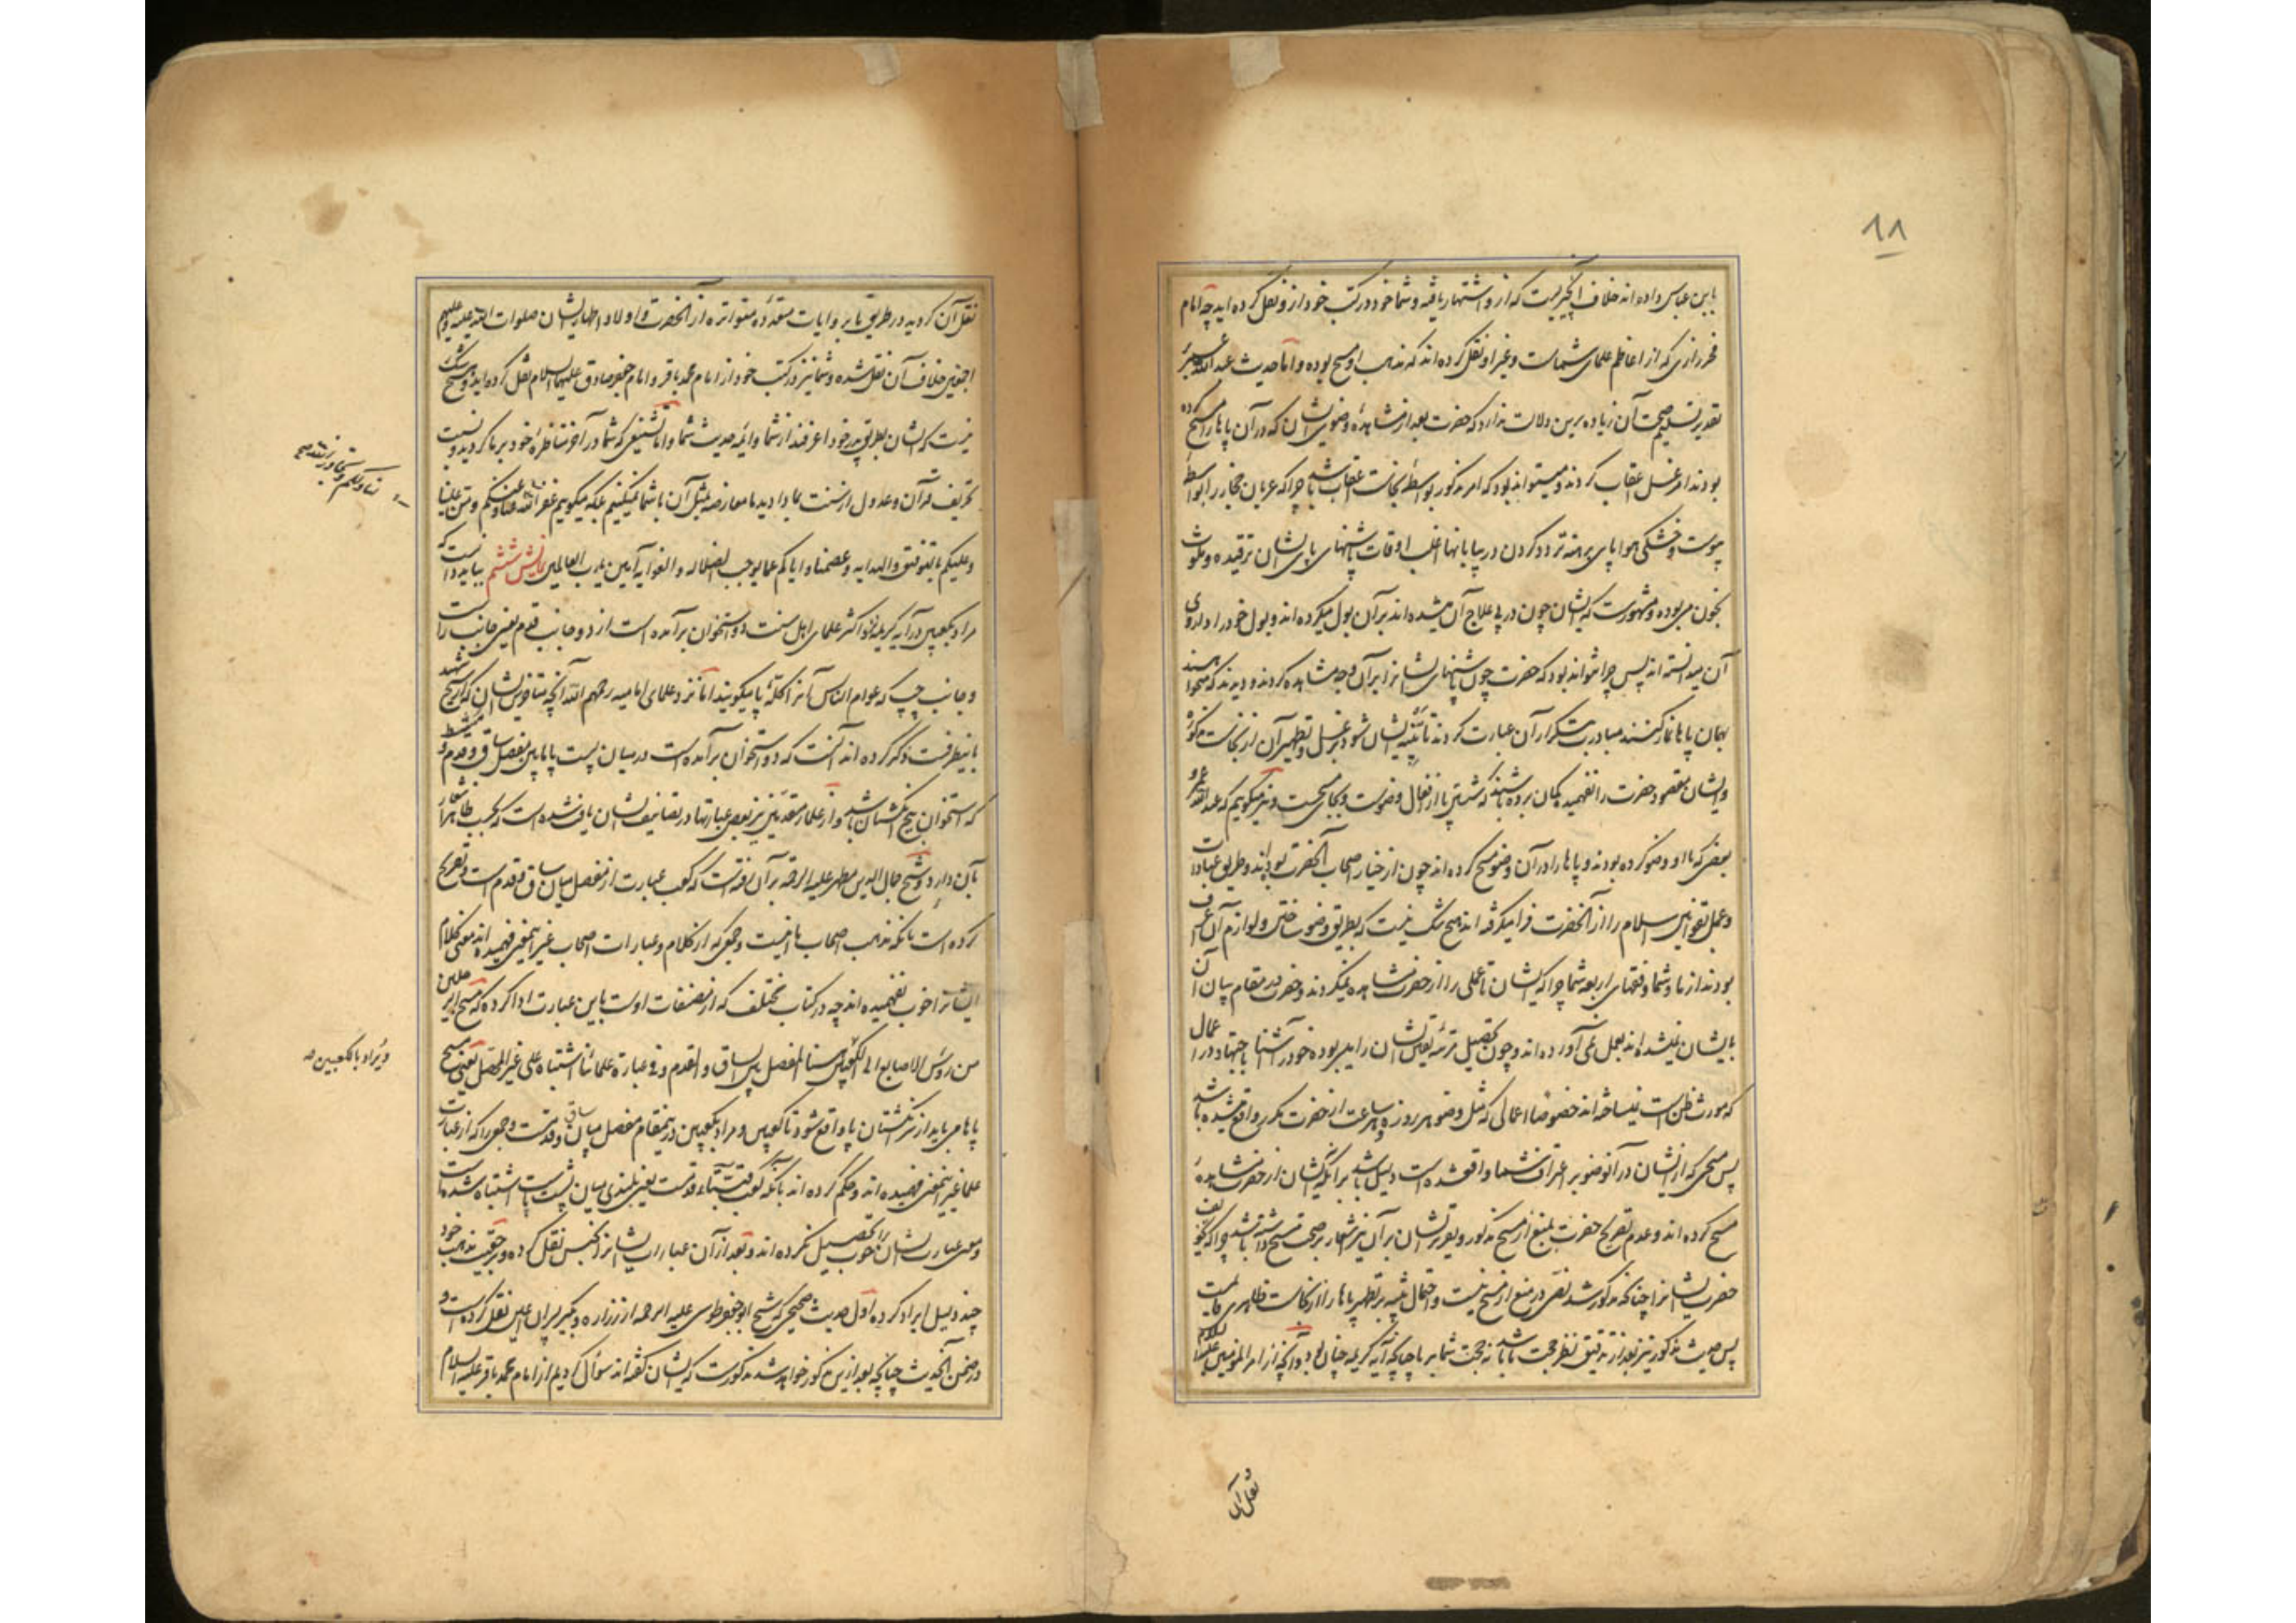 ۱۸
باین عباس داده اند خلاف آن چیزیست که از و اشتهار یافته و شما خود در کتب خود ازو نقل کرده اید چه امام
فخر رازی که از اعاظم علمای شماست و غیر او نقل کرده اند که مذهب او مسح بوده و اما حدیث عبد الله
تقدیر تسلیم صحت آن زیاده برین دلالت ندارد که حضرت بعد از مشاهدهٔ وضوی ایشان که در آن پاها را مسح کرده
بودند امر بغسل اعقاب کردند و میتواند بود که امر مذکور بواسطهٔ نجاست اعقاب باشد چرا که عربان حجاز را بواسطهٔ
یبوست و خشکی هوا و پای برهنه تردد کردن در بیابانها اغلب اوقات پاشنهای پای ایشان ترقیده و ملوث
بخون می بوده و مشهورست که ایشان چون در پی علاج آن میشده اند بر آن بول میکرده اند و بول خود را داروی
آن میدانسته اند پس چرا نتواند بود که حضرت چون پاشنهای ایشانرا بر آن وجه مشاهده کردند و دیدند که میخواهند
بهمان پاها نماز کنند مبادرت بتکرار آن عبارت کردند تا تنبیه ایشان شود بر غسل و تطهیر آن از نجاست مذکوره
و ایشان مقصود حضرت را نفهمیده گمان برده باشند که شستن پا از افعال وضوست و بجای مسحست و نیز میگوییم که عبد الله عمرو
و بعضی که با او وضو کرده بودند و پاها را در آن وضو مسح کرده اند چون از خیار اصحاب آنحضرت بوده اند و طریق عبادات
و عمل بقوانین اسلام را از آنحضرت فرا میگرفته اند هیچ شک نیست که بطریق وضو ساختن و لوازم آن اعرف
بودند از ما و شما و فقهای اربعه شما چرا که ایشان تا عملی را از حضرت مشاهده نمیکردند و حضرت در مقام بیان آن
بایشان نمیشده اند بعمل نمی آورده اند و چون تحصیل مرتبهٔ یقین ایشان را میسر بوده خود را آشنا باجتهاد در اعمال
که مورث ظن است نمیساخته اند خصوصا اعمالی که مثل وضو هر روزه و هر ساعت از حضرت مکرر واقع میشده باشد
پس مسحی که از ایشان در آن وضو بر اعتراف شما واقع شده است دلیل باشد بر آنکه ایشان از حضرت مشاهدهٔ
مسح کرده اند و عدم تصریح حضرت بمنع از مسح مذکور و تقریر ایشان بر آن نیز اشعار بر صحت مسح داشته باشد چرا که تخویف
حضرت ایشانرا چنانکه مذکور شد نص در منع از مسح نیست و احتمال تنبیه بر تطهیر پاها را از نجاست ظاهری قایمست
پس حدیث مذکور نیز بعد از تدقیق نظر حجت ما باشد نه حجت شما بر ما چنانکه آیه کریمه چنان بود و آنچه از امیر المؤمنین علیه السلام
و نقل آن
نقل آن کردید در طریق ما بروایات متعدده متواتره از آنحضرت و اولاد اطهار ایشان صلوات الله علیه و علیهم
اجمعین خلاف آن نقل شده و شما نیز در کتب خود از امام محمد باقر و امام جعفر صادق علیهما السلام نقل کرده اید و هیچ شک
نیست که ایشان بطریق پدر خود اعرفند از شما و ایمه حدیث شما و اما تشنیعی که شما در آخر مناظرهٔ خود بر ما کردید و نسبت
تحریف قرآن و عدول از سنت بما دادید ما معارضه بمثل آن با شما نمیکنیم بلکه میگوییم غفر الله لنا و لکم و من علینا
و علیکم بالتوفیق و الهدایه و عصمنا و ایاکم عما یوجب الضلاله و الغوایه آمین یا رب العالمین نمایش ششم بباید دانست که
مراد بکعبین در آیه کریمه نزد اکثر علمای اهل سنت دو استخوان برآمده است از دو جانب قدم یعنی جانب راست
و جانب چپ که عوام الناس آنرا کلهٔ پا میگویند اما نزد علمای امامیه رحمهم الله آنچه متاخرین ایشان که از شیخ شهید
باینطرفست ذکر کرده اند آنست که دو استخوان برآمده است در میان پشت پا مابین مفصل ساق و قدم و مشط
که استخوان بیخ انگشتان باشد و از علماء متقدمین نیز بعضی عبارتها در تصانیف ایشان یافت شده است که بحسب ظاهر اشعار
بآن دارد و شیخ جمال الدین مطهر علیه الرحمه بر آن رفته است که کعب عبارت از مفصل میان ساق و قدم است و تصریح
کرده است بآنکه مذهب اصحاب ما اینست و جمعی که از کلام و عبارات اصحاب غیر این معنی فهمیده اند معنی کلام
ایشانرا خوب نفهمیده اند چه در کتاب مختلف که از مصنفات اوست باین عبارت ادا کرده که مسح الرجلین
من رؤس الاصابع الی الکعبین هنا المفصل بین الساق و القدم و فی عبارة علمائنا اشتباه علی غیر المحصل یعنی مسح
پاها می باید از سر انگشتان پا واقع شود تا کعبین و مراد بکعبین در ینمقام مفصل میان ساق و قدمست و جمعی را که از عبارت
علما غیر این معنی فهمیده اند و حکم کرده اند بآنکه کعب قبهٔ قدمست یعنی بلندی میان پشت پا است اشتباه شده است
و معنی عبارت ایشان را خوب تحصیل نکرده اند و بعد از آن عبارات ایشانرا بجنس نقل کرده و بر حقیقت مذهب خود
چند دلیل ایراد کرده اول حدیث صحیحی که شیخ ابو جعفر طوسی علیه الرحمه از زراره و بکیر پسران اعین نقل کرده است و
در ضمن آن حدیث چنانچه بعد ازین مذکور خواهد شد مذکورست که ایشان گفته اند سؤال کردیم از امام محمد باقر علیه السلام
و یراد بالکعبین